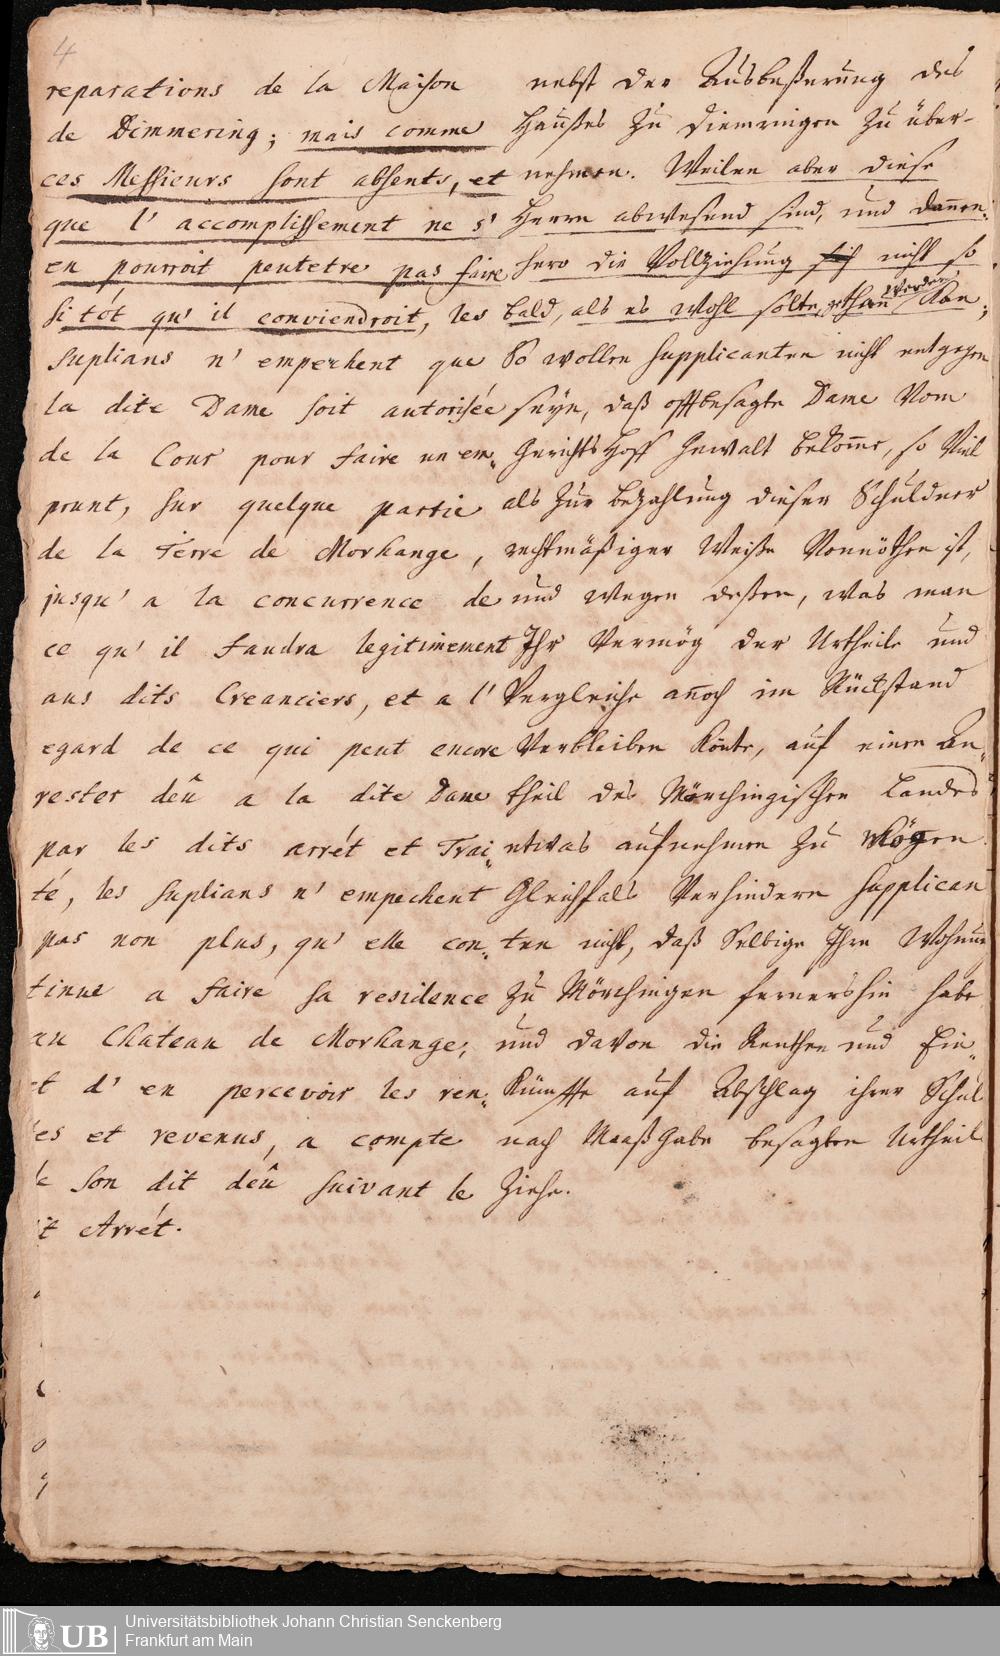 4
reparations de la Maison
de Dimmering; mais comme
ces Messieurs sont absents, et
que l' accomplissement ne s'
en pourroit peutetre pas faire
si tót qu' il conviendroit, les
suplians n' empechent que
la dite Dame soit autorisée
de la Cour pour faire un em„
prunt, sur quelque partie
de la Terre de Morhange,
jusqu' a la concurrence de
ce qu' il faudra legitimement
aus dits Creanciers, et a l'
egard de ce qui peut encore
rester deû a la dite Dame
par les dits arrét et Trai„
té, les suplians n' empechent
pas non plus, qu' elle con„
tinue a faire sa residence
au Chateau de Morhange;
et d' en percevoir les ren„
tes et revenus, a compte
de son dit deû suivant le
dit Arrét.
nebst der Ausbeßerung des
Haußes zu Diemringen zu über-
nehmen. Weilen aber diese
Herren abwesend sind, und dannen„
hero die Vollziehung sich nicht so
bald, als es wohl solte, gethan werden kan;
So wollen Supplicanten nicht entgegen
seyn, daß offtbesagte Dame Vom
Gerichts Hoff Gewalt bekomme, so Viel
als zur bezahlung dieser Schuldner
rechtmäßiger Weiße Vonnöthen ist,
und wegen deßen, was man
Ihr Vermög der Urtheile und
Vergleiche annoch im Rückstand
Verbleiben könte, auf einen An„
theil des Mörchingischen Landes
etwas aufnehmen zu mögen.
Gleichfals Verhindern Supplican
ten nicht, daß Selbige Ihre Wohnung
zu Mörchingen fernershin habe
und davon die Renthen und Ein„
künffte auf Abschlag ihrer Schul
nach Maaßgabe besagten Urtheil
ziehe.
Universitätsbibliothek Johann Christian Senckenberg
UB Frankfurt am Main